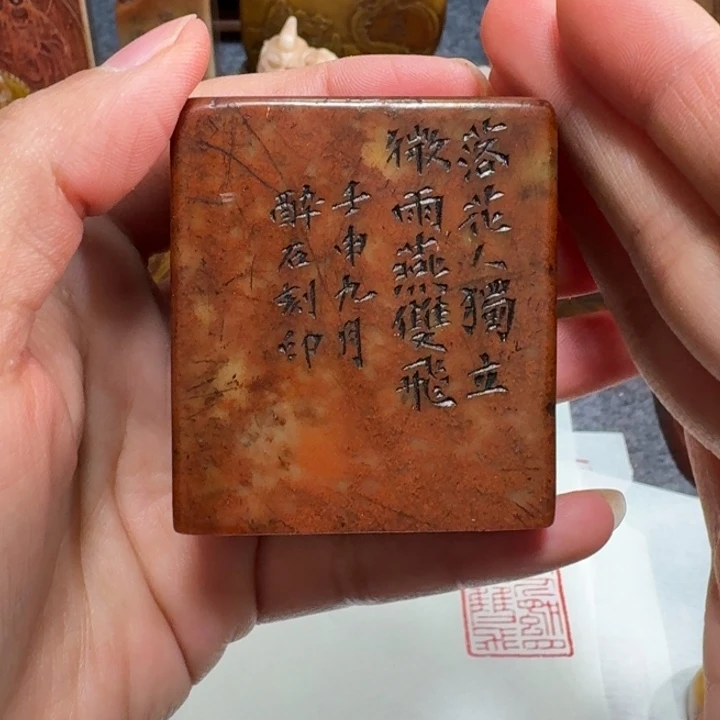 落花人獨立
微雨燕雙飛
壬申九月
醉石刻印